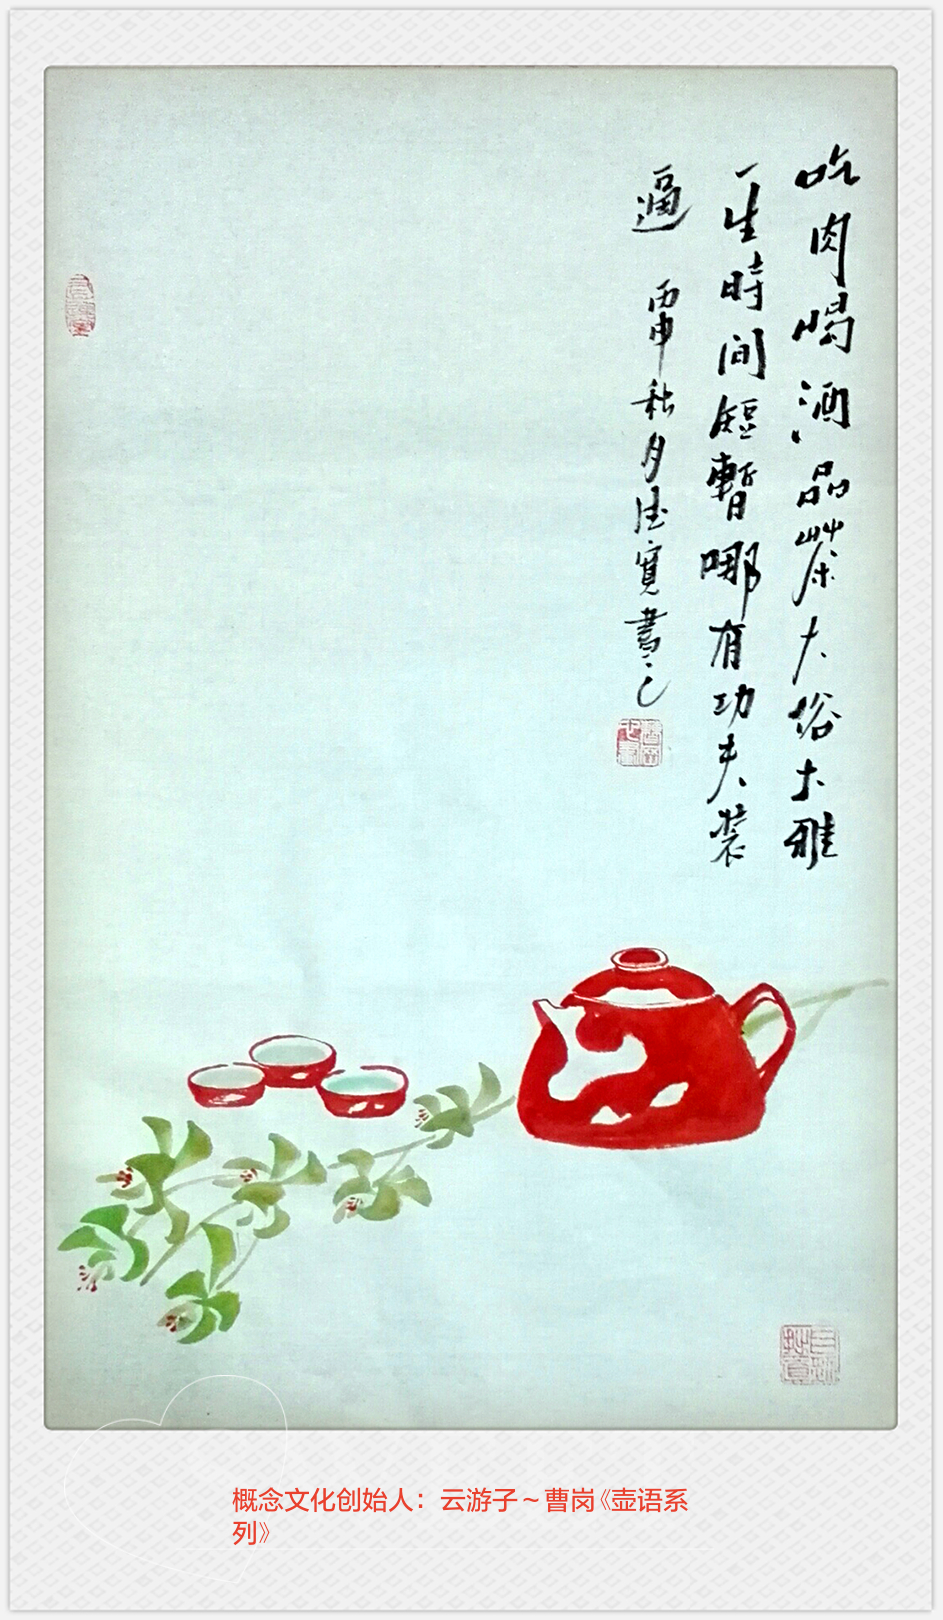 吃肉喝酒品茶大俗大雅
一生時间短暫哪有功夫裝
逼 丙申秋月
概念文化创始人：云游子～曹岗《壶语系
列》